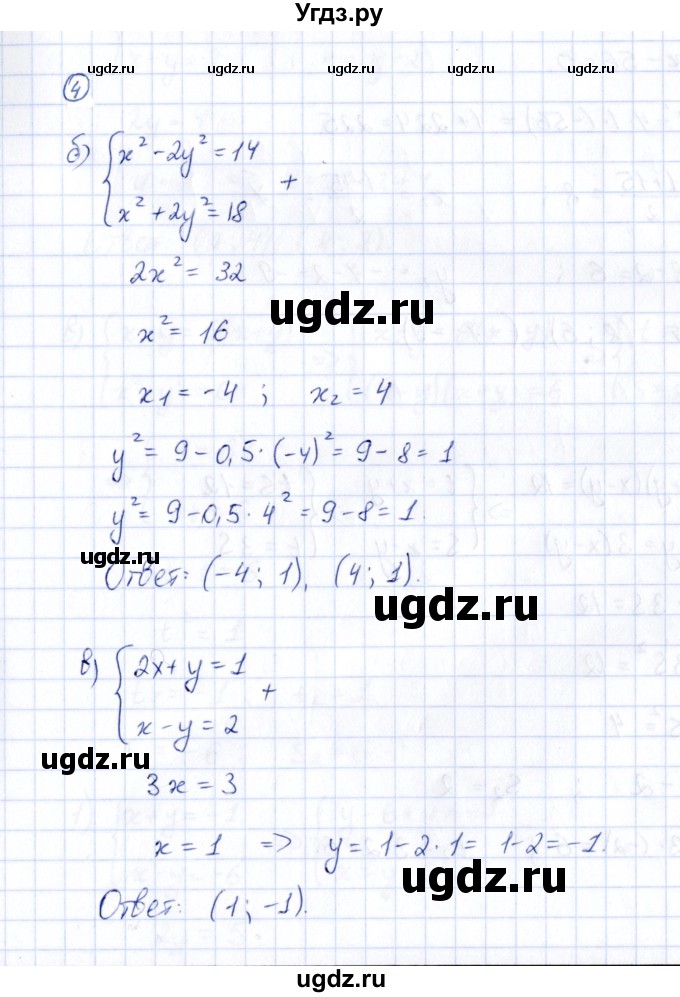 Угдз.ру
ugdz.ru ugdz.ru ugdz.ru
④
б) { x² - 2y² = 14
x² + 2y² = 18 +
2x² = 32
ugdz.ru
x² = 16
x₁ = -4 ; x₂ = 4
y² = 9 - 0,5 · (-4)² = 9 - 8 = 1
y² = 9 - 0,5 · 4² = 9 - 8 = 1.
ugdz.ru
Ответ: (-4; 1), (4; 1).
ugdz.ru
в) { 2x + y = 1
x - y = 2 +
ugdz.ru
3x = 3
x = 1 => y = 1 - 2 · 1 = 1 - 2 = -1.
ugdz.ru
Ответ: (1; -1).
ugdz.ru